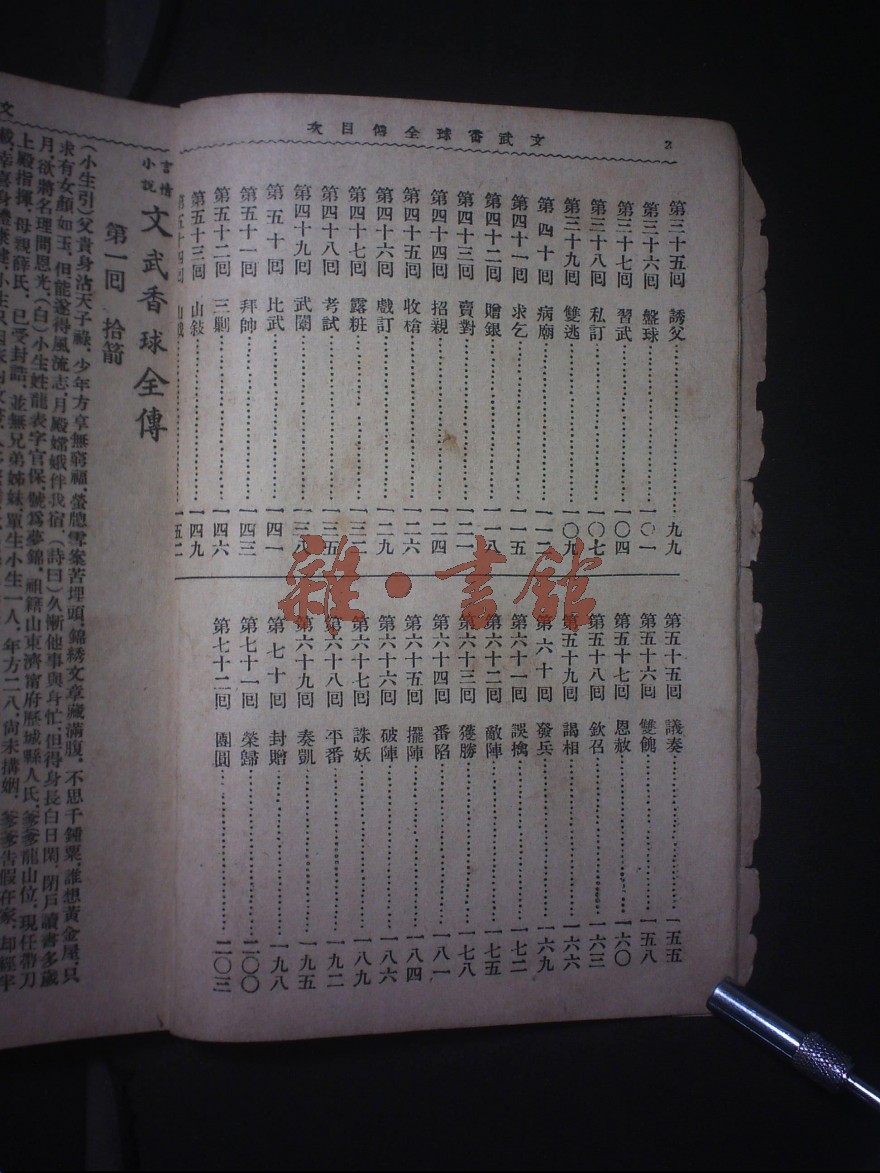 文武香球全傳目次
2
第三十五回 誘父 九九
第三十六回 盤球 一〇一
第三十七回 習武 一〇四
第三十八回 私訂 一〇七
第三十九回 雙逃 一〇九
第四十回 病廟 一一二
第四十一回 求乞 一一五
第四十二回 贈銀 一一八
第四十三回 賣對 一二一
第四十四回 招親 一二四
第四十五回 收槍 一二六
第四十六回 戲訂 一二九
第四十七回 露粧 一三二
第四十八回 考試 一三五
第四十九回 武闈 一三八
第五十回 比武 一四一
第五十一回 拜帥 一四三
第五十二回 三剿 一四六
第五十三回 山敍 一四九
第五十四回 一五二
第五十五回 議奏 一五五
第五十六回 雙餽 一五八
第五十七回 恩赦 一六〇
第五十八回 欽召 一六三
第五十九回 謁相 一六六
第六十回 發兵 一六九
第六十一回 誤擒 一七二
第六十二回 敵陣 一七五
第六十三回 獲勝 一七八
第六十四回 番陷 一八一
第六十五回 擺陣 一八四
第六十六回 破陣 一八六
第六十七回 誅妖 一八九
第六十八回 平番 一九二
第六十九回 奏凱 一九五
第七十回 封贈 一九八
第七十一回 榮歸 二〇〇
第七十二回 團圓 二〇三
雜·書館
文
言情小說 文武香球全傳
第一回 拾箭
(小生引)父貴身沾天子祿、少年方享無窮福、螢牕雪案苦埋頭、錦綉文章藏滿腹、不思千鍾粟、誰想黃金屋、只
求有女顏如玉、但能遂得風流志、月殿嫦娥伴我宿、(詩曰)久慚他事與身忙、但得身長白日閑、閉戶讀書多歲
月、欲將名理問恩光、(白)小生姓龍表字官保、號爲夢錦、祖籍山東濟甯府歷城縣人氏、爹爹龍山位、現任帶刀
上殿指揮、母親薛氏、已受封誥、並無兄弟姊妹、單生小生一人、年方二八、尙未搆姻、爹爹告假在家、却經半
載、幸喜身體康健、小生